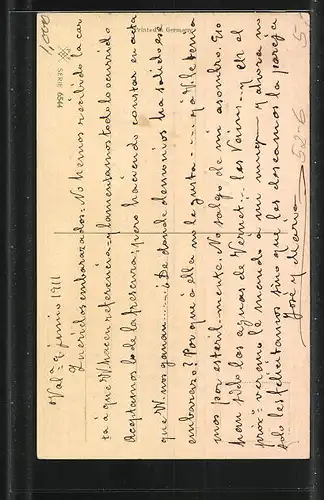 Printed in Germany
SERIE 6544
Val.ª 2 junio 1911
Queridos embarazados: No hemos recibido la car
ta á que V.V. hacen referencia y lamentamos todo lo ocurrido
Aceptamos lo de la frescura; pero haciendo constar en acta
que V.V. nos ganan.... ¿De donde demonios ha salido ese
embarazo? Por que á ella no le gusta.... y á V. le tenia
mos por esteril-mente. No salgo de mi asombro. Eso
han sido las aguas de Vernet... les Vains... y en el
proxº verano le mando á mi mujer. Y ahora no
solo les felicitamos sino que les deseamos la pareja
José y Maria
52-6
5-
1,000